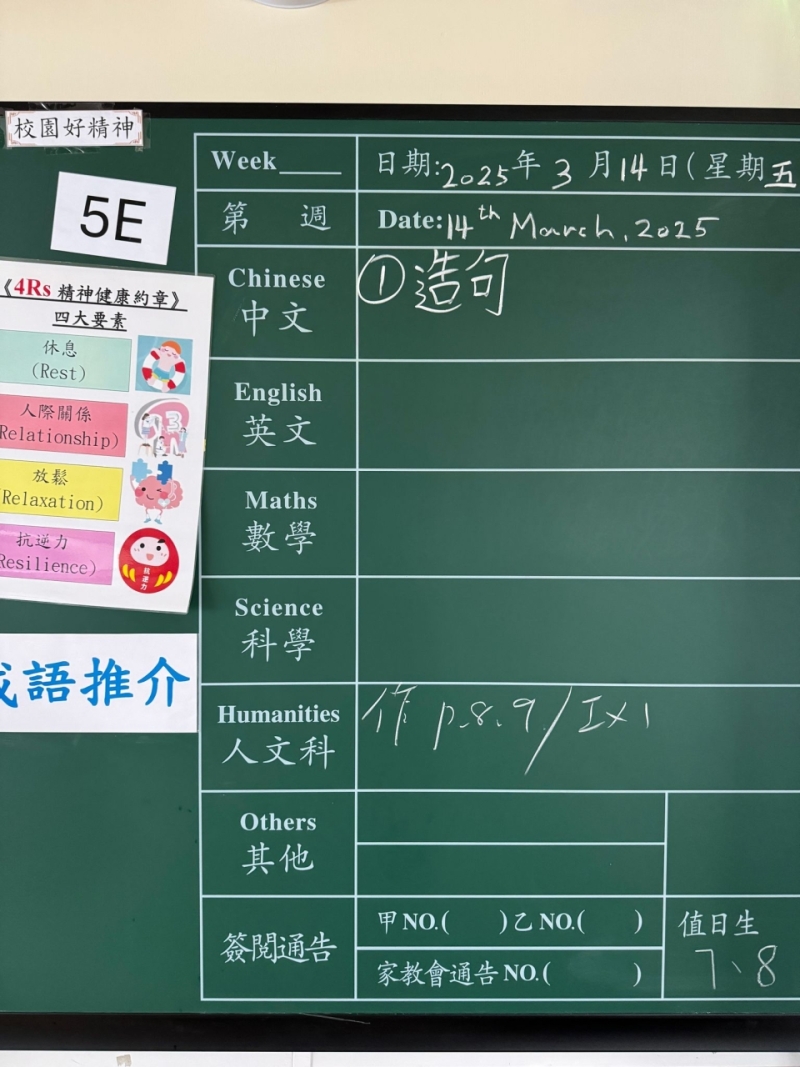 校園好精神
5E
《4Rs 精神健康約章》
四大要素
休息
(Rest)
人際關係
Relationship)
放鬆
Relaxation)
抗逆力
Resilience)
抗逆力
語推介
Week
日期:2025年3月14日(星期五
第 週
Date:14th March, 2025
Chinese
中文
①造句
English
英文
Maths
數學
Science
科學
Humanities
人文科
作 p.8、9/IX1
Others
其他
簽閱通告
甲NO.( )乙NO.( )
家教會通告NO.( )
值日生
7、8